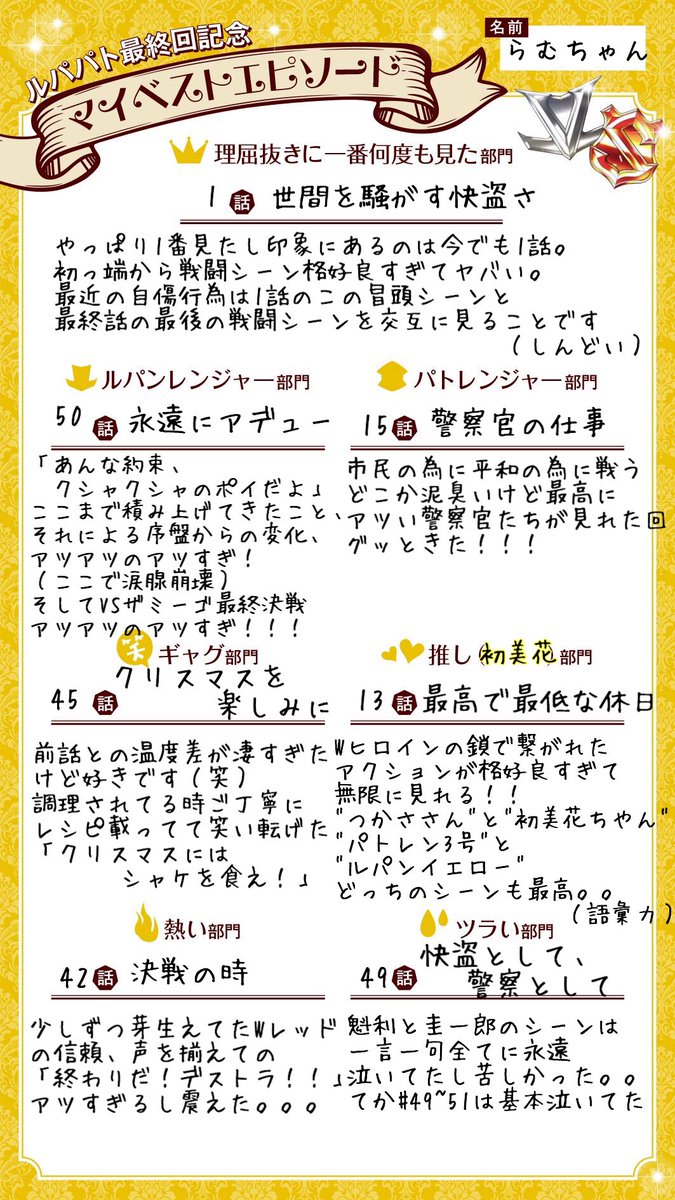 ルパパト最終回記念
マイベストエピソード
名前
らむちゃん
理屈抜きに一番何度も見た部門
1話 世間を騒がす快盗さ
やっぱり1番見たし印象にあるのは今でも1話。
初っ端から戦闘シーン格好良すぎてヤバい。
最近の自傷行為は1話のこの冒頭シーンと
最終話の最後の戦闘シーンを交互に見ることです
(しんどい)
ルパンレンジャー部門
50話 永遠にアデュー
「あんな約束、
クシャクシャのポイだよ」
ここまで積み上げてきたこと、
それによる序盤からの変化、
アツアツのアツすぎ!
(ここで涙腺崩壊)
そしてVSザミーゴ最終決戦
アツアツのアツすぎ!!!
パトレンジャー部門
15話 警察官の仕事
市民の為に平和の為に戦う
どこか泥臭いけど最高に
アツい警察官たちが見れた回
グッときた!!!
笑
ギャグ部門
45話 クリスマスを
楽しみに
前話との温度差が凄すぎた
けど好きです(笑)
調理されてる時ご丁寧に
レシピ載ってて笑い転げた
「クリスマスには
シャケを食え!」
推し初美花部門
13話 最高で最低な休日
Wヒロインの鎖で繋がれた
アクションが格好良すぎて
無限に見れる!!
"つかささん"と"初美花ちゃん"
"パトレン3号"と
"ルパンイエロー"
どっちのシーンも最高。。
(語彙力)
熱い部門
42話 決戦の時
少しずつ芽生えてたWレッド
の信頼、声を揃えての
「終わりだ!デストラ!!」
アツすぎるし震えた。。。
ツラい部門
49話 快盗として、
警察として
魁利と圭一郎のシーンは
一言一句全てに永遠
泣いてたし苦しかった。。
てか#49~51は基本泣いてた